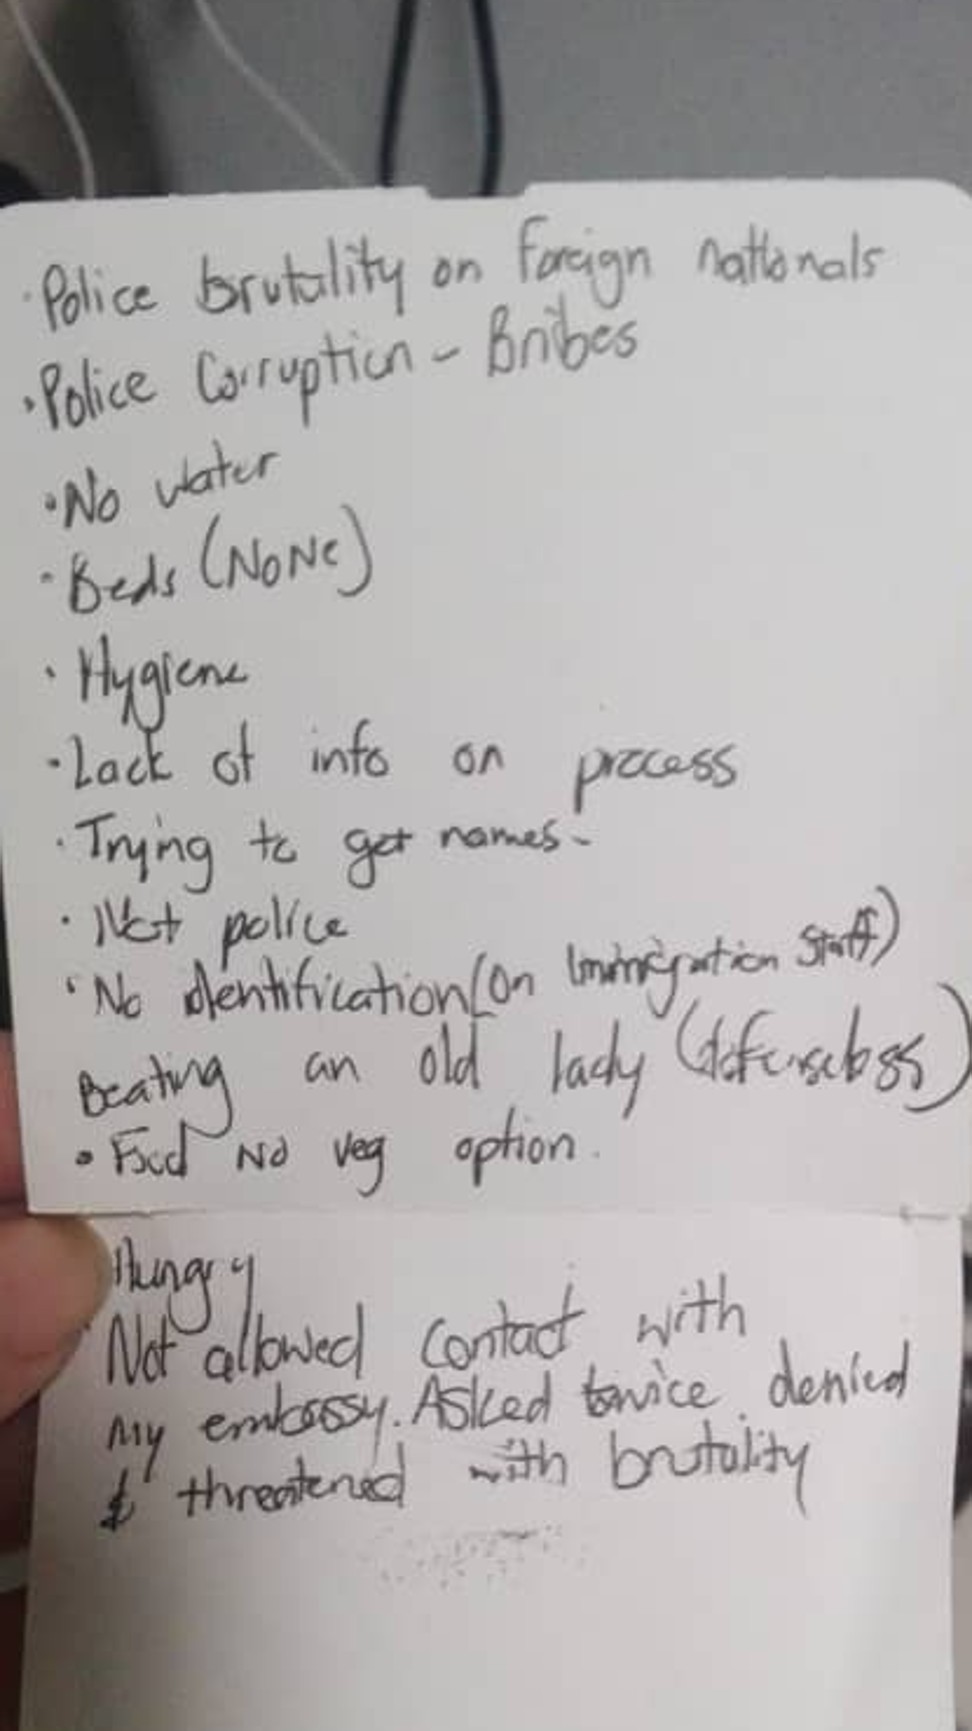 · Police brutality on Foreign nationals
· Police Corruption - Bribes
· No water
· Beds (NoNe)
· Hygiene
· Lack of info on process
· Trying to get names -
· Not police
· No identification (on Immigration Staff)
Beating an old lady (defenseless)
· Food No veg option.
Hungry
Not allowed contact with
my embassy. Asked twice denied
& threatened with brutality